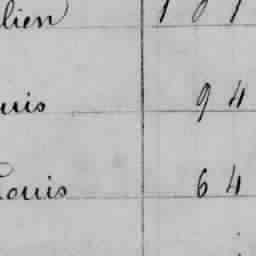 lien
uis 94
Louis 64